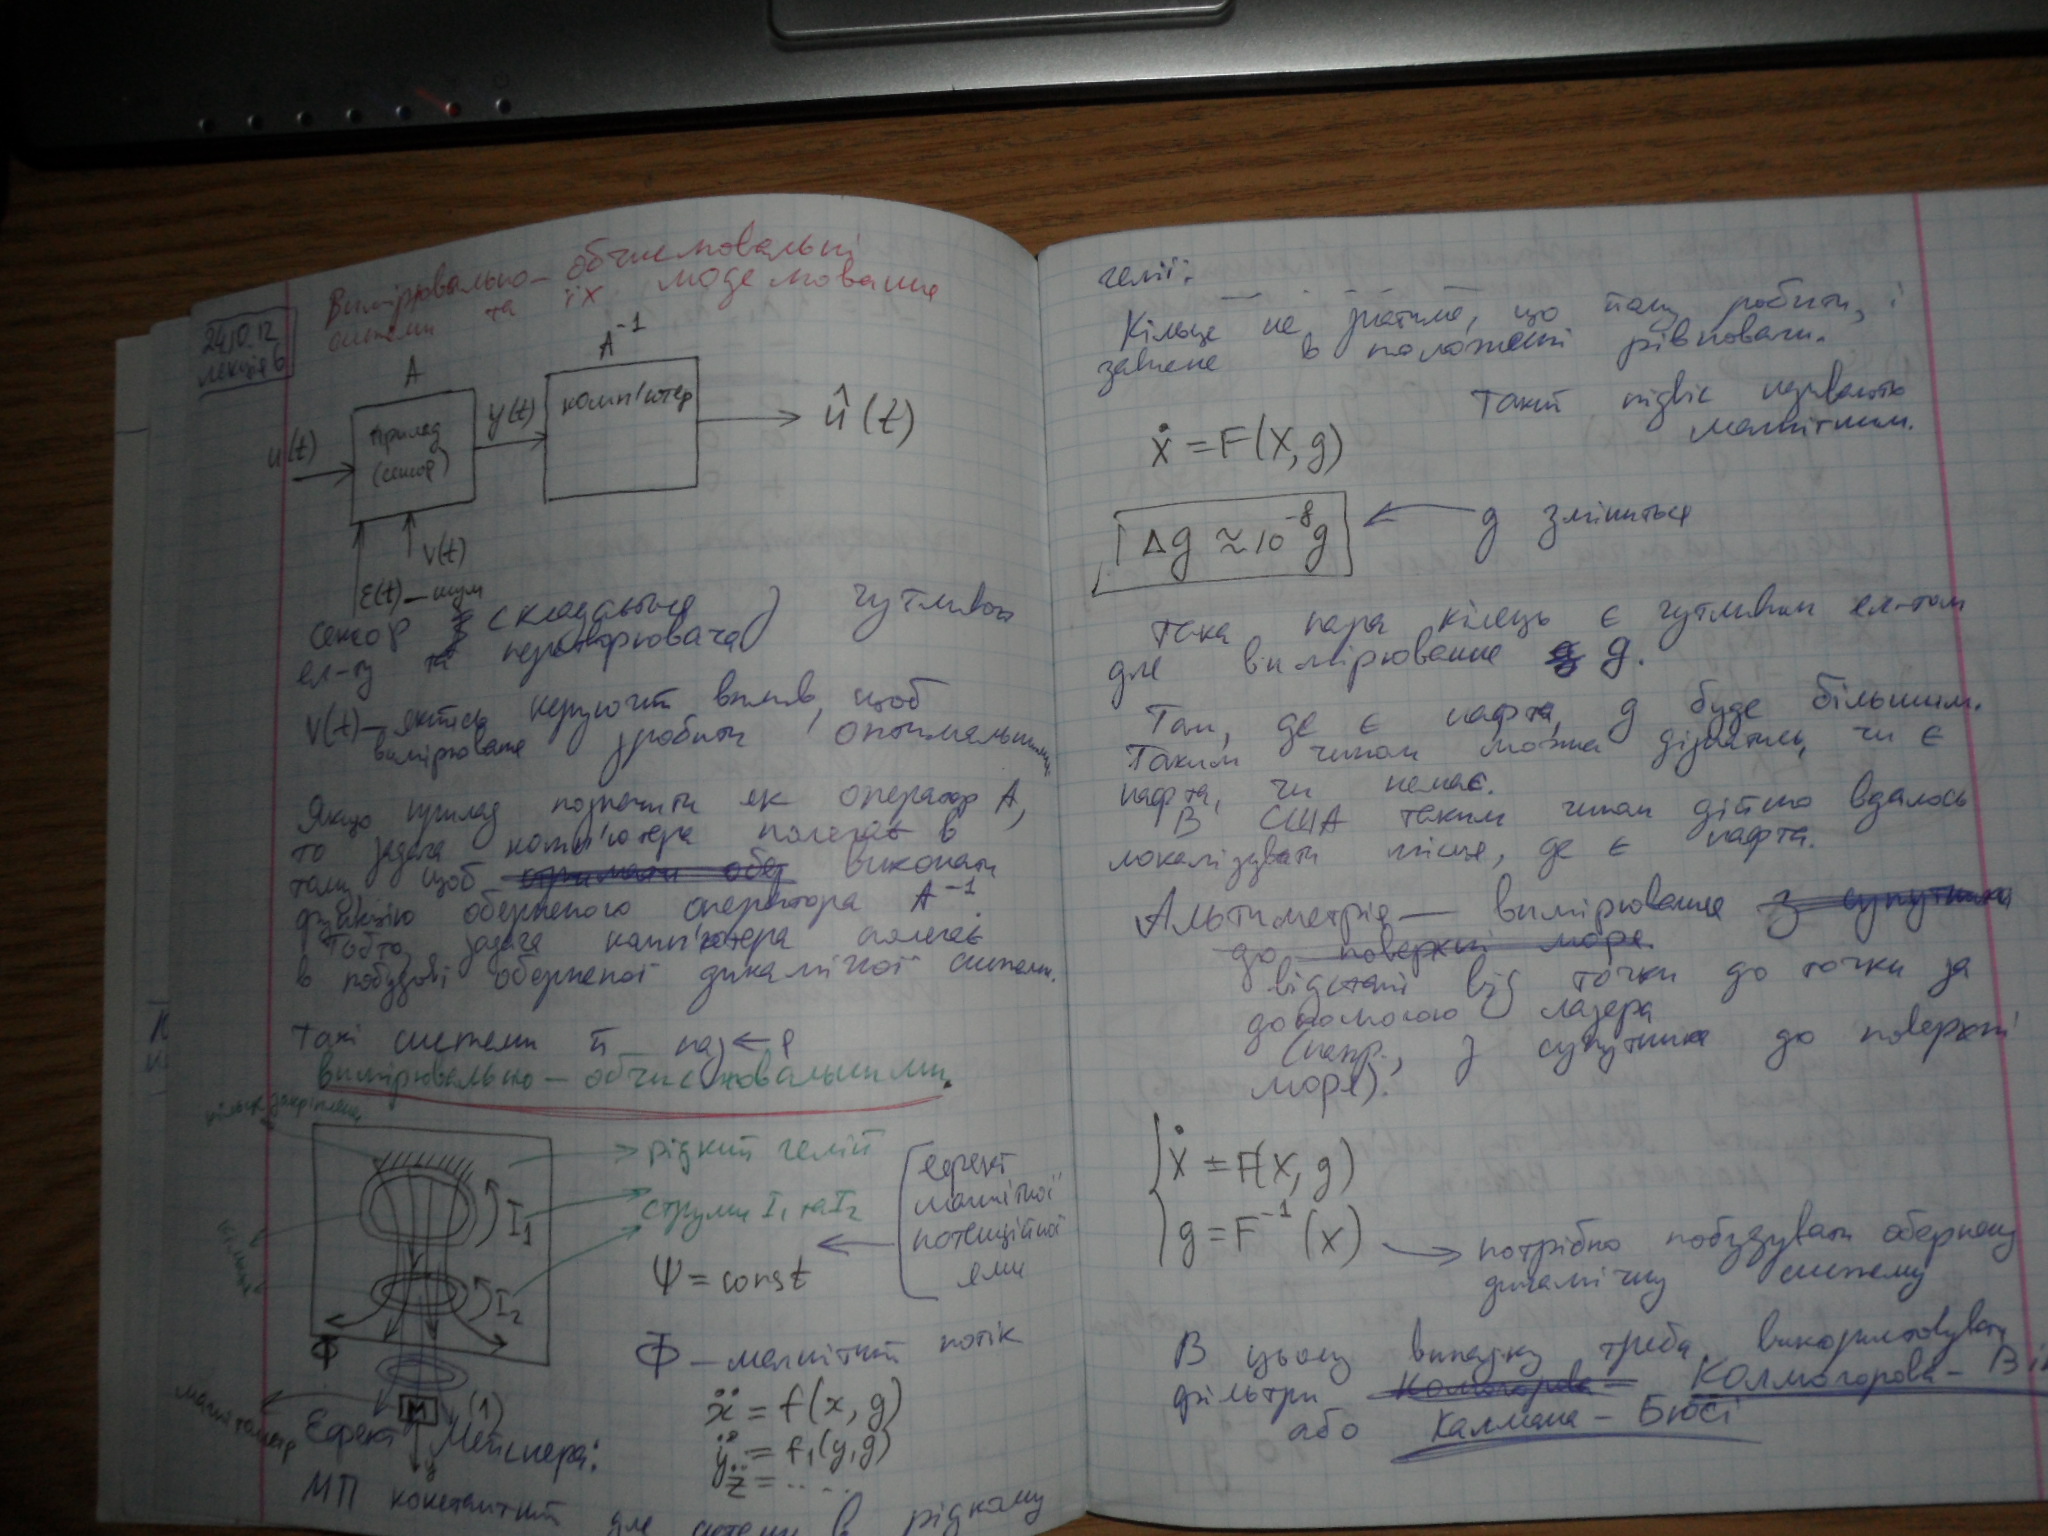 24.10.12
лекція 6
Вимірювально-обчислювальні
системи та їх моделювання
A
A⁻¹
u(t)
прилад
(сенсор)
y(t)
комп'ютер
û(t)
V(t)
ε(t) – шум
Сенсор складається з чутливого
ел-ту та перетворювача
V(t) – якийсь керуючий вплив, щоб
вимірюване зробити оптимальним
Якщо прилад позначити як оператор A,
то задача комп'ютера полягає в
тому, щоб виконати
функцію оберненого оператора A⁻¹.
Тобто, задача комп'ютера полягає
в побудові оберненої динамічної системи.
Такі системи й наз
вимірювально-обчислювальними.
кільце закріплене
рідкий гелій
I₁
струми I₁ та I₂
I₂
кільця
ефект
магнітної
потенційної
ями
Ψ = const
Φ
Φ – магнітний потік
магнітометр
M
(1)
ẍ = f(x, g)
ÿ = f₁(y, g)
z̈ = .....
Ефект Мейснера:
МП константний для системи в рідкому
гелії.
Кільце не знатиме, що йому робити, і
зависне в положенні рівноваги.
Такий підвіс називають
магнітним.
Ẋ = F(X, g)
Δg ≈ 10⁻⁸g
g зміниться
Така пара кілець є чутливим ел-том
для вимірювання g.
Там, де є нафта, g буде більшим.
Таким чином можна дізнатись, чи є
нафта, чи немає.
В США таким чином дійсно вдалось
локалізувати місце, де є нафта.
Альтиметрія – вимірювання з супутника
до поверхні моря
відстані від точки до точки за
допомогою лазера
(напр., з супутника до поверхні
моря).
Ẋ = F(X, g)
g = F⁻¹(x)
потрібно побудувати обернену
динамічну систему
В цьому випадку треба використовувати
фільтри Колмогорова – Колмогорова – Ві
або Калмана – Бюсі